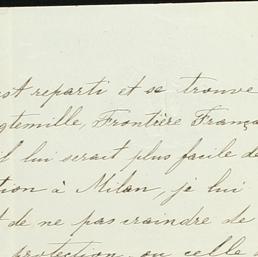 est reparti et se trouve
gtemille, Frontière França
il lui serait plus facile de
tion à Milan, je lui
de ne pas craindre de
protection, ou celle